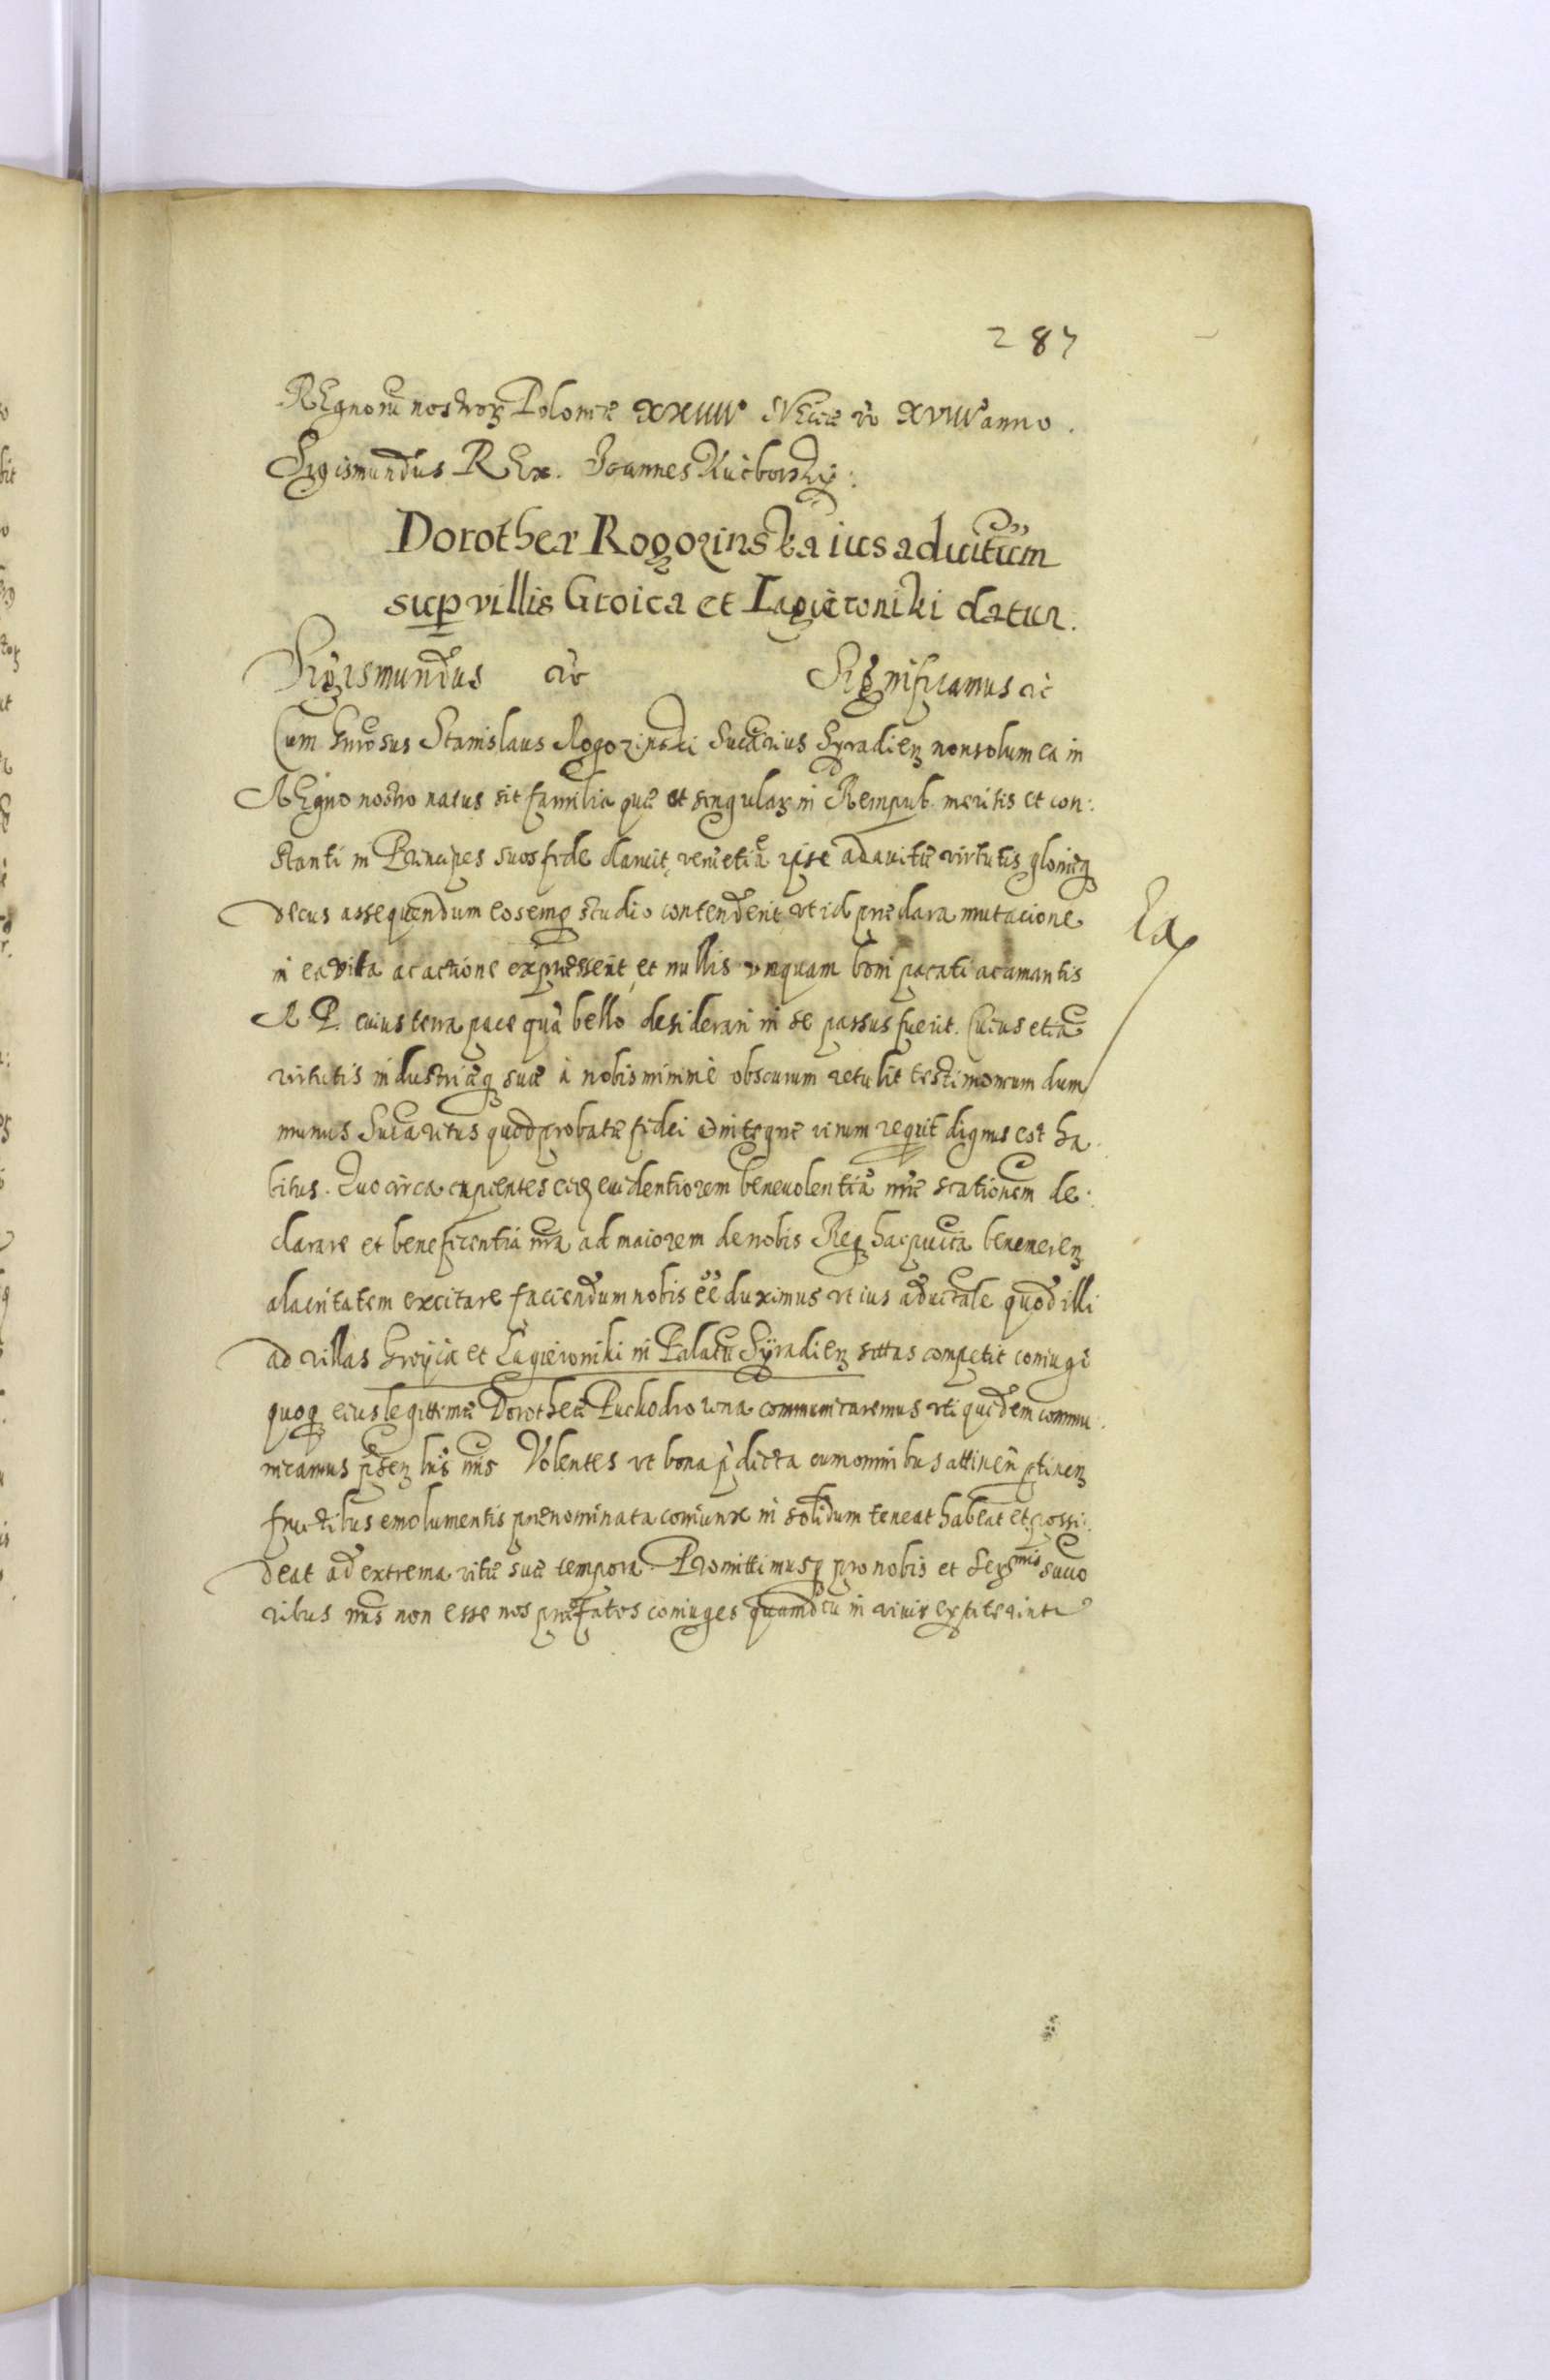 287
REgnorũ nostroꝝ Poloniæ XXIIII° SVEciæ vo XVIII anno.
Sigismundus REx. Joannes Kućborskij:
Dorotheæ Rogozinska ius aduitũm
sup villis Groica et Lagieroniki datur.
Sigismundus etc Significamus etc
Cum Gnrosus Stanislaus Rogozinski Succãrius Syradieñ non solum ea in
REgno nostro natus sit familia quæ et singularȝ in Rempub. meritis et con:
stanti in Principes suos fide claruit, verũ etiã ipse ad auitũ virtutis gloriæq
decus assequendum eo semp studio contenderit, vt id præclara mutacione
in ea vita ac actione expresserit, et nullis vnquam boni pacati ac amantis
R. P. ciuis terra pace quã bello desiderari in se passus fuerit. Cuius etiã
virtutis industriæq suæ à nobis minimè obscurum retulit testimonium dum
munus Succãritus quod probatæ fidei et integræ virum requit dignus est ha
bitus. Quocirca cupientes eidȝ euidentiorem beneuolentiã nræ scationem de:
clarare et beneficentiã nrã ad maiorem de nobis Reiq hac pcia benemereñ
alacritatem excitare faciendum nobis ee duximus vt ius aduitale quod illi
ad villas Groyca et Lagieroniki in Palatũ Syradieñ sittas competit coniugi
quoq eius legittimæ Dorotheæ Puckodrowna communicaremus vti quidem commu:
nicamus pñseñ lris nris Volentes vt bona pdicta cum omnibus attineñ ptineñ
fructibus emolumentis prænominata coniunx in solidum teneat habeat et possi:
deat ad extrema vitæ suæ tempora. Promittimusq pro nobis et Serᵐⁱˢ succo
ribus nris non esse nos præfatos coniuges quamdiu in viuis extiterint
Lax